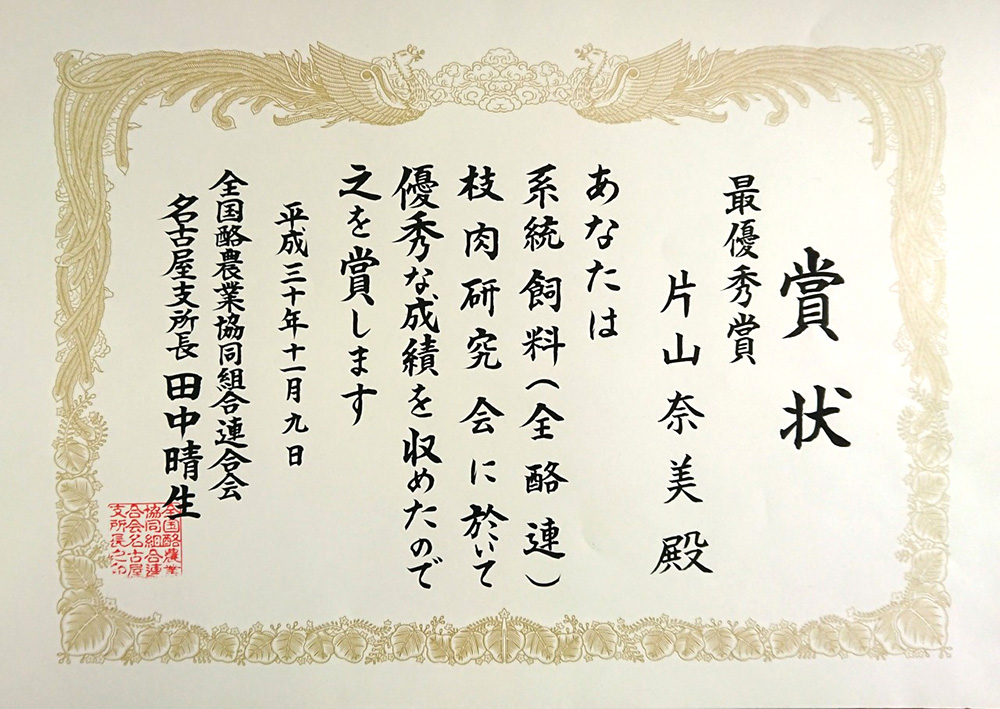 賞状
最優秀賞
片山奈美殿
あなたは
系統飼料(全酪連)
枝肉研究会に於いて
優秀な成績を収めたので
之を賞します
平成三十年十一月九日
全国酪農業協同組合連合会
名古屋支所長 田中晴生
全国酪農業
協同組合連
合会名古屋
支所長之印